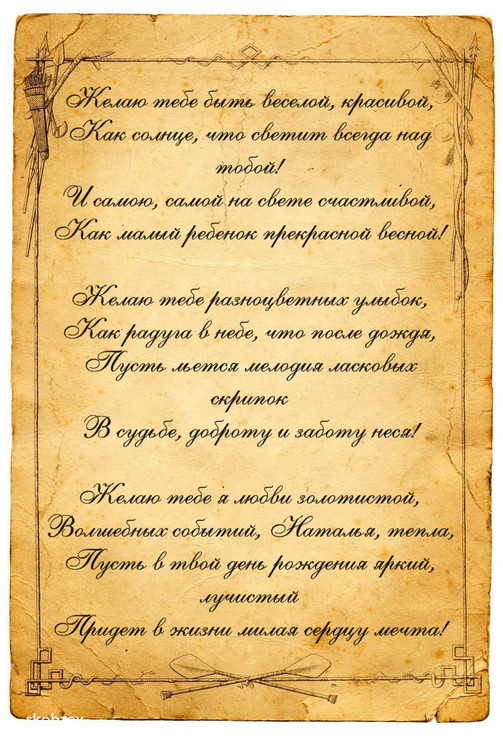 Желаю тебе быть веселой, красивой,
Как солнце, что светит всегда над
тобой!
И самою, самой на свете счастливой,
Как малый ребенок прекрасной весной!
Желаю тебе разноцветных улыбок,
Как радуга в небе, что после дождя,
Пусть льется мелодия ласковых
скрипок
В судьбе, доброту и заботу неся!
Желаю тебе я любви золотистой,
Волшебных событий, Наталья, тепла,
Пусть в твой день рождения яркий,
лучистый
Придет в жизни милая сердцу мечта!